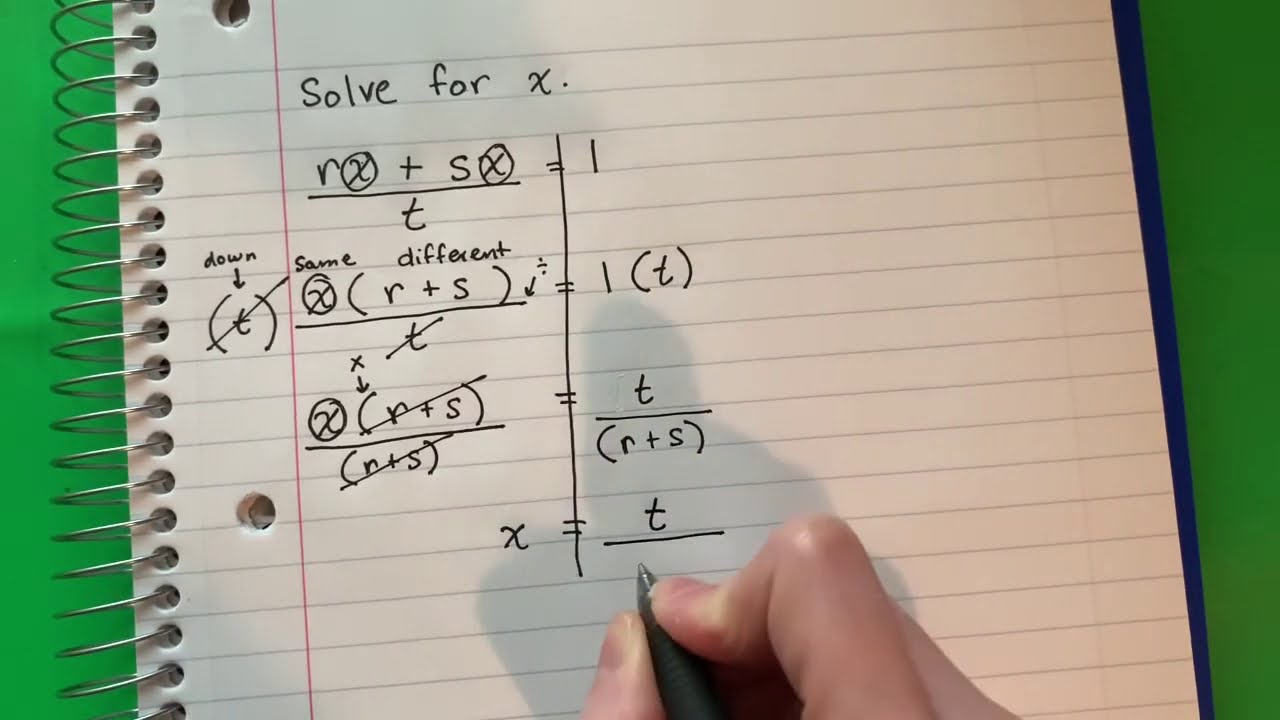 Solve for x.
rx + sx = 1
t
down
same different
÷
(t) x(r + s) = 1(t)
t
x
x(r+s) = t
(r+s) (r+s)
x = t